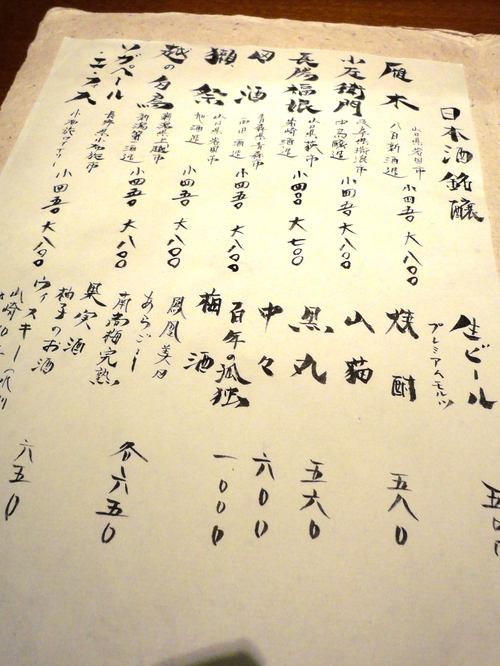 日本酒銘醸
雁木
山口県岩国市
八百新酒造
小四五〇 大八〇〇
小左衛門
岐阜県瑞浪市
中島醸造
小四五〇 大八〇〇
長陽福娘
山口県萩市
岩崎酒造
小四〇〇 大七〇〇
田酒
青森県青森市
西田酒造
小四五〇 大八〇〇
獺祭
山口県岩国市
旭酒造
小四五〇 大八〇〇
越の白鳥
新潟県上越市
新潟第一酒造
小四五〇 大八〇〇
ソガペール
エ フィス
長野県小布施市
小布施ワイナリー
小四五〇 大八〇〇
生ビール
プレミアムモルツ
焼酎
山猫
五八〇
黒丸
五六〇
中々
六〇〇
百年の孤独
一〇〇〇
梅酒
鳳凰美田
あらごし
南高梅完熟
各六五〇
果実酒
柚子のお酒
六五〇
ウィスキー